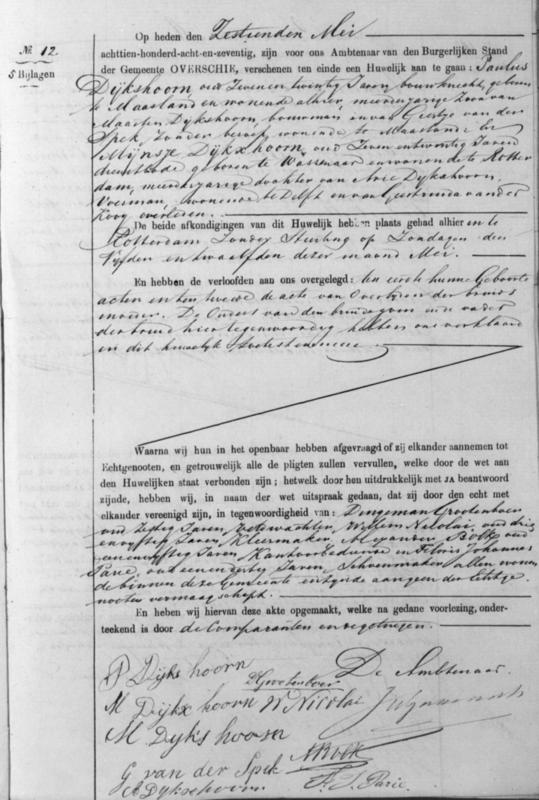 Nº 12
5 Bijlagen
Op heden den Zestienden Mei
achttien-honderd-acht-en-zeventig, zijn voor ons Ambtenaar van den Burgerlijken Stand
der Gemeente OVERSCHIE, verschenen ten einde een Huwelijk aan te gaan: Paulus
Dijkshoorn, oud Zeven en twintig Jaren bouwknecht, geboren
te Maasland en wonende alhier, meerderjarige zoon van
Maarten Dijkshoorn, bouwman en van Geertje van der
Spek, Zonder beroep, wonende te Maasland en
Mijnsje Dijkxhoorn, oud Zeven en twintig Jaren
dienstbode geboren te Wassenaar en wonende te Rotter
dam, meerderjarige dochter van Arie Dijkshoorn,
Voerman, wonende te Delft en van Geertruida van der
Koog overleden.
De beide afkondigingen van dit Huwelijk hebben plaats gehad alhier en te
Rotterdam Zonder Stuiting op Zondagen den
Vijfden en twaalfden dezer maand Mei.
En hebben de verloofden aan ons overgelegd: ten eerste hunne Geboorte
acten en ten tweede de acte van Overlijden der bruids
moeder. De Ouders van den bruidegom en de vader
der bruid hier tegenwoordig hebben ons verklaard
in dit huwelijk toetestemmen
Waarna wij hun in het openbaar hebben afgevraagd of zij elkander aannemen tot
Echtgenooten, en getrouwelijk alle de pligten zullen vervullen, welke door de wet aan
den Huwelijken staat verbonden zijn; hetwelk door hen uitdrukkelijk met JA beantwoord
zijnde, hebben wij, in naam der wet uitspraak gedaan, dat zij door den echt met
elkander vereenigd zijn, in tegenwoordigheid van: Dingeman Grootenboer
oud Zestig Jaren, Veldwachter, Willem Nicolai, oud drie
en vijftig Jaren Kleermaker, Bolk oud
een en vijftig Jaren, Kantoorbediende en Johannes
Parie, oud een en dertig Jaren, Schoenmaker allen wonen
de binnen deze Gemeente en tgeene aangaan der Echtge
nooten vermaagschapt.
En hebben wij hiervan deze akte opgemaakt, welke na gedane voorlezing, onder-
teekend is door de Comparanten en getuigen.
P Dijkshoorn
DGrootenboer
De Ambtenaar.
M Dijkxhoorn
W Nicolai
M Dijkshoorn
G van der Spek
ABolk
A Dijkshoorn
F. J. Parie